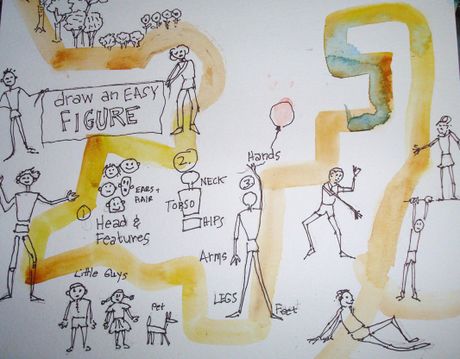 draw an EASY
FIGURE
1
EARS +
HAIR
Head &
Features
2.
NECK
TORSO
HIPS
Hands
3
Arms
LEGS
Feet
Little Guys
Pet